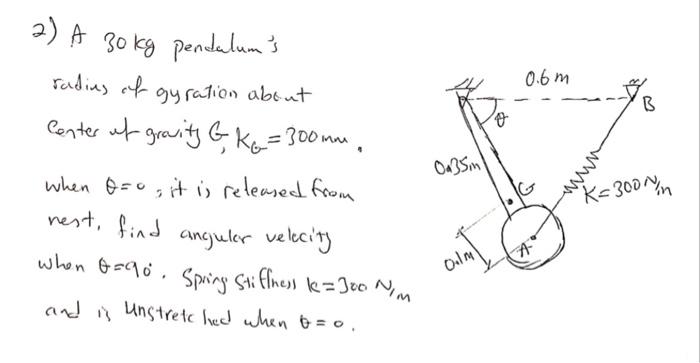 2) A 30 kg pendulum's
radius of gyration about
Center of gravity G, KG = 300 mm.
when θ=0, it is released from
rest, find angular velocity
when θ=90°. Spring Stiffness k=300 N/m
and is Unstretched when θ=0.
0.6 m
B
θ
0.35m
G
K=300 N/m
A
0.1m